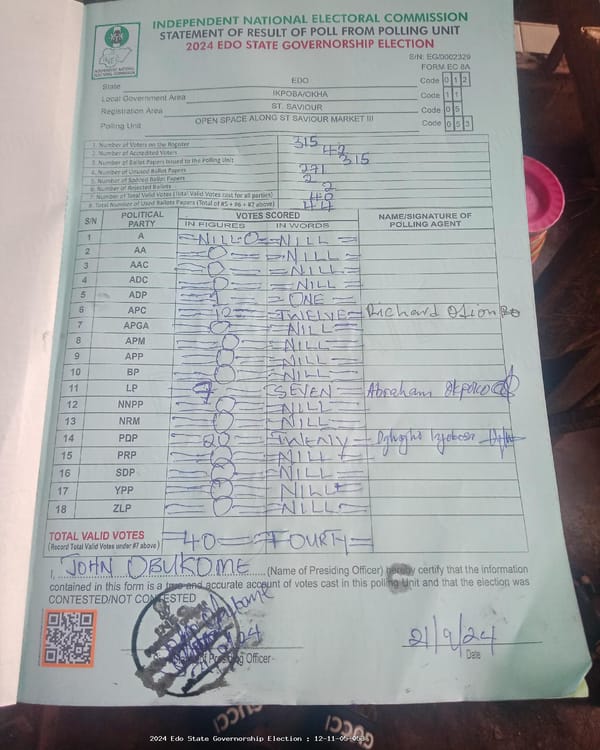 INDEPENDENT NATIONAL ELECTORAL COMMISSION
STATEMENT OF RESULT OF POLL FROM POLLING UNIT
2024 EDO STATE GOVERNORSHIP ELECTION
S/N: EG/0002329
FORM EC 8A
State EDO Code 0 1 2
Local Government Area IKPOBA/OKHA Code 1 1
Registration Area ST. SAVIOUR Code 0 5
Polling Unit OPEN SPACE ALONG ST SAVIOUR MARKET III Code 0 5 3
1. Number of Voters on the Register 315
2. Number of Accredited Voters 42
3. Number of Ballot Papers Issued to the Polling Unit 315
4. Number of Unused Ballot Papers 271
5. Number of Spoiled Ballot Papers 2
6. Number of Rejected Ballots 2
7. Number of Total Valid Votes (Total Valid Votes cast for all parties) 40
8. Total Number of Used Ballots Papers (Total of #5 + #6 + #7 above) 44
S/N POLITICAL PARTY VOTES SCORED NAME/SIGNATURE OF POLLING AGENT
IN FIGURES IN WORDS
1 A NILL 0 NILL
2 AA 0 NILL
3 AAC 0 NILL
4 ADC 0 NILL
5 ADP 1 ONE
6 APC 12 TWELVE Richard
7 APGA 0 NILL
8 APM 0 NILL
9 APP 0 NILL
10 BP 0 NILL
11 LP 7 SEVEN Abraham
12 NNPP 0 NILL
13 NRM 0 NILL
14 PDP 20 TWENTY
15 PRP 0 NILL
16 SDP 0 NILL
17 YPP 0 NILL
18 ZLP 0 NILL
TOTAL VALID VOTES 40 FOURTY
(Record Total Valid Votes under #7 above)
I, JOHN OBUKOME (Name of Presiding Officer) hereby certify that the information
contained in this form is a true and accurate account of votes cast in this polling Unit and that the election was
CONTESTED/NOT CONTESTED
of Presiding Officer
21/9/24
Date
GUCCI
GUCCI
2024 Edo State Governorship Election : 12-11-05-053